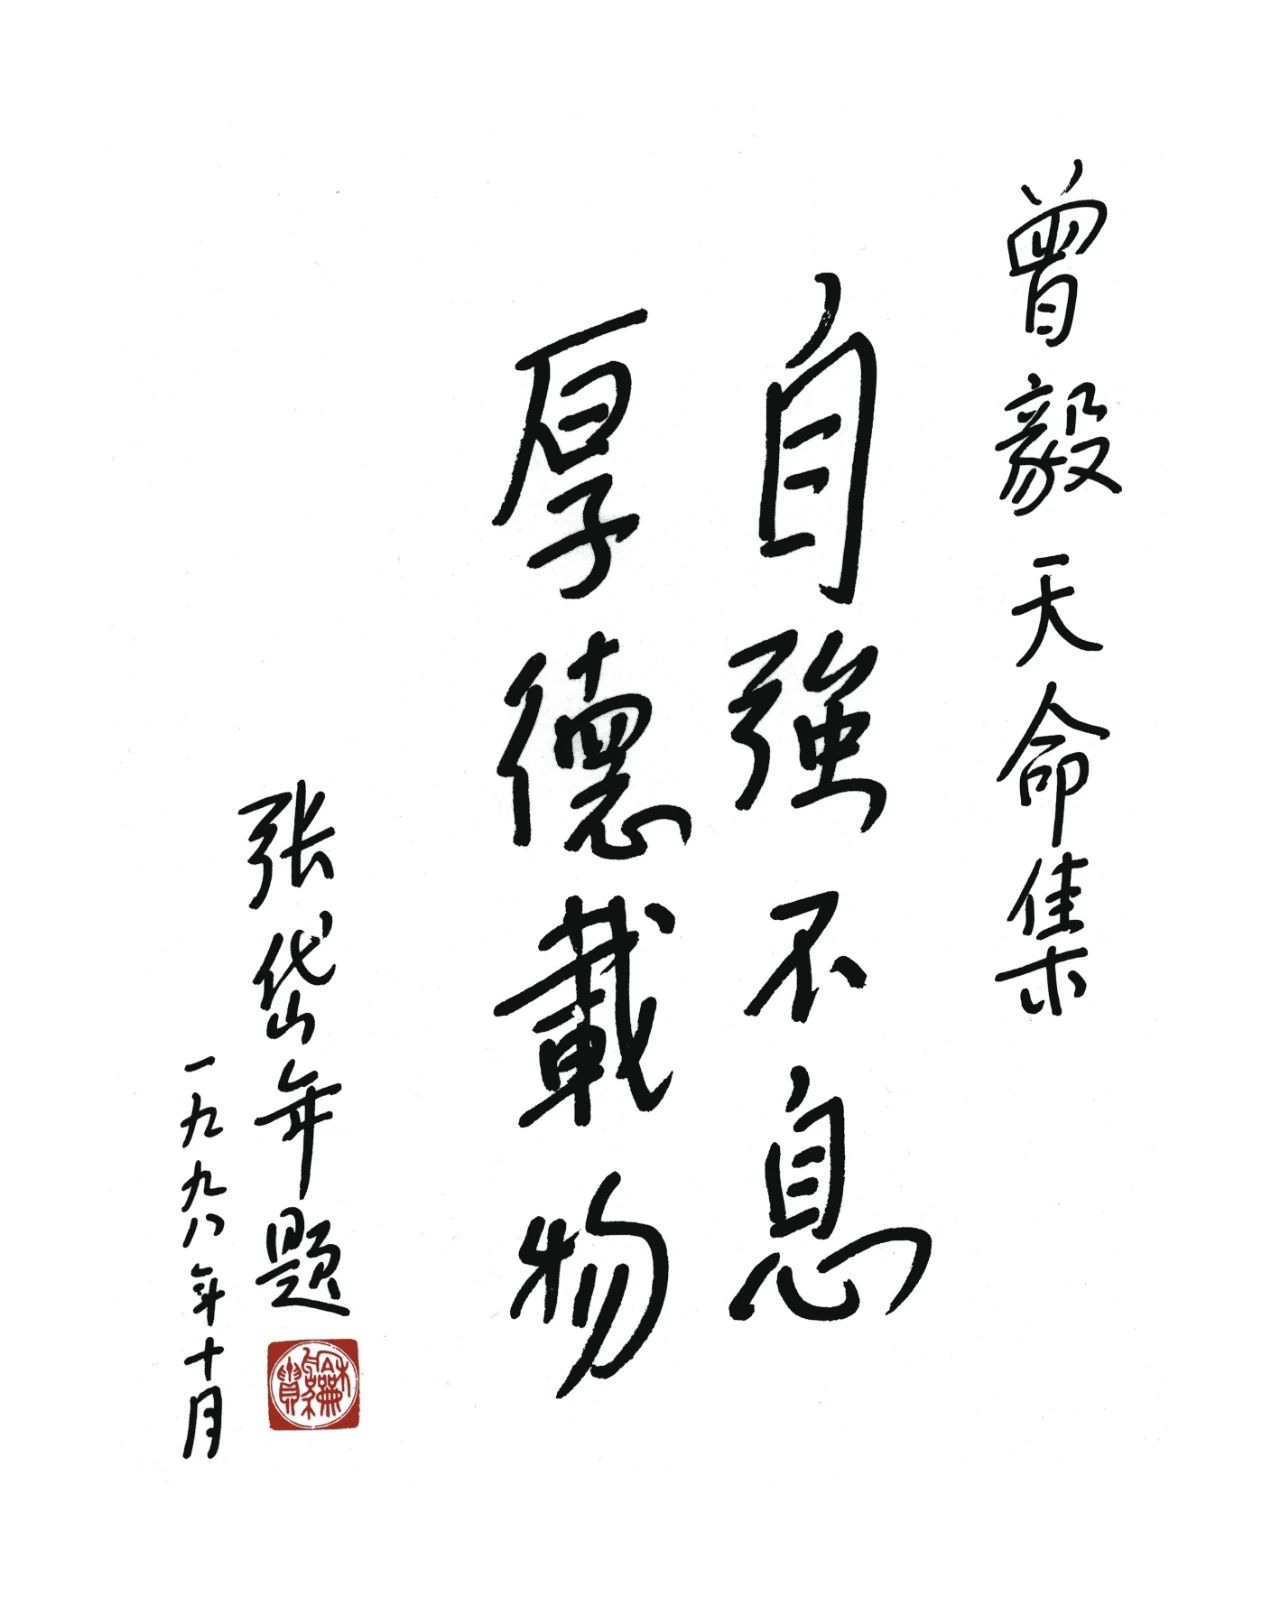 曾毅天命集
自強不息
厚德載物
张岱年题
一九九八年十月